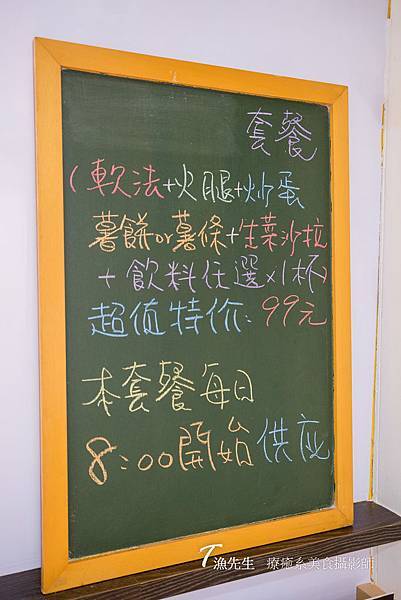 套餐
(軟法+火腿+炒蛋
薯餅or薯條+生菜沙拉
+飲料任選x1杯)
超值特价:99元
本套餐每日
8:00開始供应
T漁先生 療癒系美食攝影師